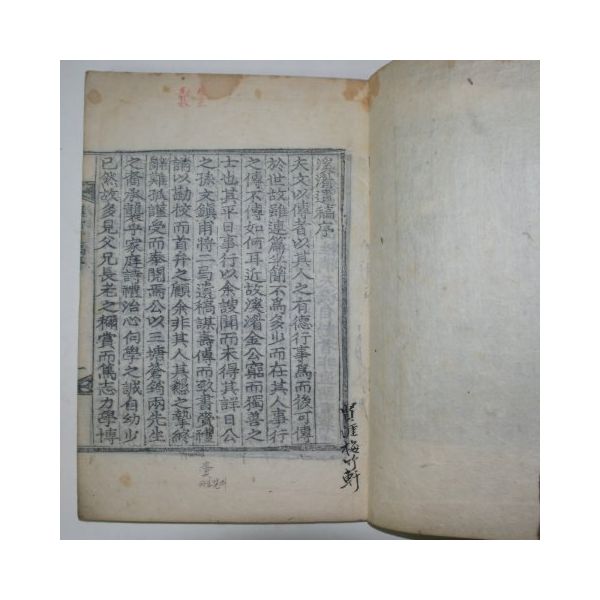 溪潛遺稿序
夫文以傳者以其人之有德行事爲而後可傳
於世故雖連篇坐簡不爲多少而在其人事行
之傳不傳如何耳近故溪潛金公窮而獨善之
士也其平日事行以余謏聞而未得其詳日公
之孫文鎭甫將二局遺稿謀壽傳而
請以勘校而首弁之顧余非其人其懇之摯終
辭難孤謹受而奉閱焉公以三塘蒼
兩先生
之裔承襲乎家庭詩禮治心向學之誠自幼少
已然故多見父兄長老之稱賞而篤志力學博
梅竹軒